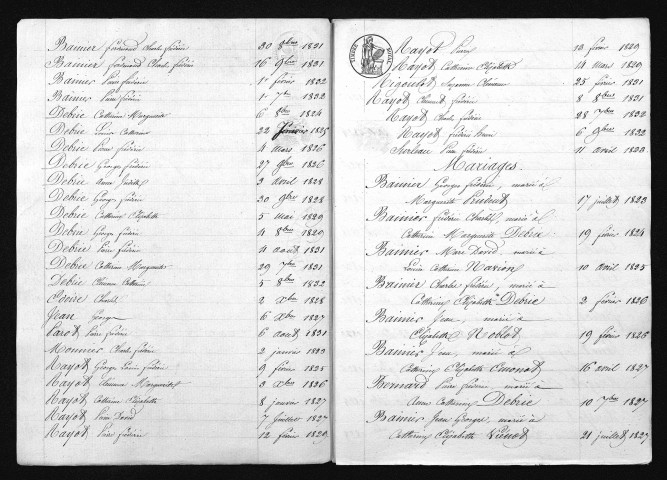 Bainier Ferdinand Charles Fréderic 30 9bre 1821
Bainier Ferdinand Charles Fréderic 16 9bre 1821
Bainier Pierre Fréderic 1er février 1822
Bainier Pierre Fréderic 1 7bre 1822
Debrie Catherine Marguerite 6 8bre 1824
Debrie Louise Catherine 22 Janvier 1825
Debrie Pierre Fréderic 4 mars 1826
Debrie George Fréderic 27 9bre 1826
Debrie Anne Judith 2 avril 1828
Debrie George Fréderic 30 9bre 1828
Debrie Catherine Elizabeth 5 mai 1829
Debrie George Fréderic 4 8bre 1829
Debrie Pierre Fréderic 4 août 1831
Debrie Catherine Marguerite 29 7bre 1831
Debrie Catherine 5 8bre 1832
Charles 2 Xbre 1828
Jean George 6 Xbre 1827
Parot Pierre Fréderic 6 août 1831
Monnier Charles Fréderic 2 janvier 1823
Nayot George Louis Fréderic 9 février 1825
Nayot Marguerite 3 Xbre 1826
Nayot Catherine Elizabeth 8 janvier 1827
Nayot Pierre David 7 Juillet 1827
Nayot Pierre Fréderic 12 février 1829
TIMBRE ROYAL
Nayot Pierre 13 février 1829
Nayot Catherine Elizabeth 14 mars 1829
Suzanne 25 février 1831
Nayot Fréderic 8 8bre 1831
Nayot Charles Fréderic 28 7bre 1832
Nayot Fréderic 6 9bre 1832
Surleau Pierre Fréderic 11 avril 1823
Mariages.
Bainier George Fréderic, marié à
Marguerite 17 juillet 1823
Bainier Fréderic Charles, marié à
Catherine Marguerite Debrie 19 février 1824
Bainier Marc David, marié à
Louise Catherine Marion 10 avril 1825
Bainier Charles Fréderic, marié à
Catherine Elizabeth Debrie 2 février 1826
Bainier Jean, marié à
Elizabeth Noblot 19 février 1826
Bainier Jean, marié à
Catherine Elizabeth 16 avril 1827
Pierre Fréderic, marié à
Anne Catherine Debrie 10 7bre 1827
Bainier Jean George, marié à
Catherine Elizabeth 21 juillet 1827